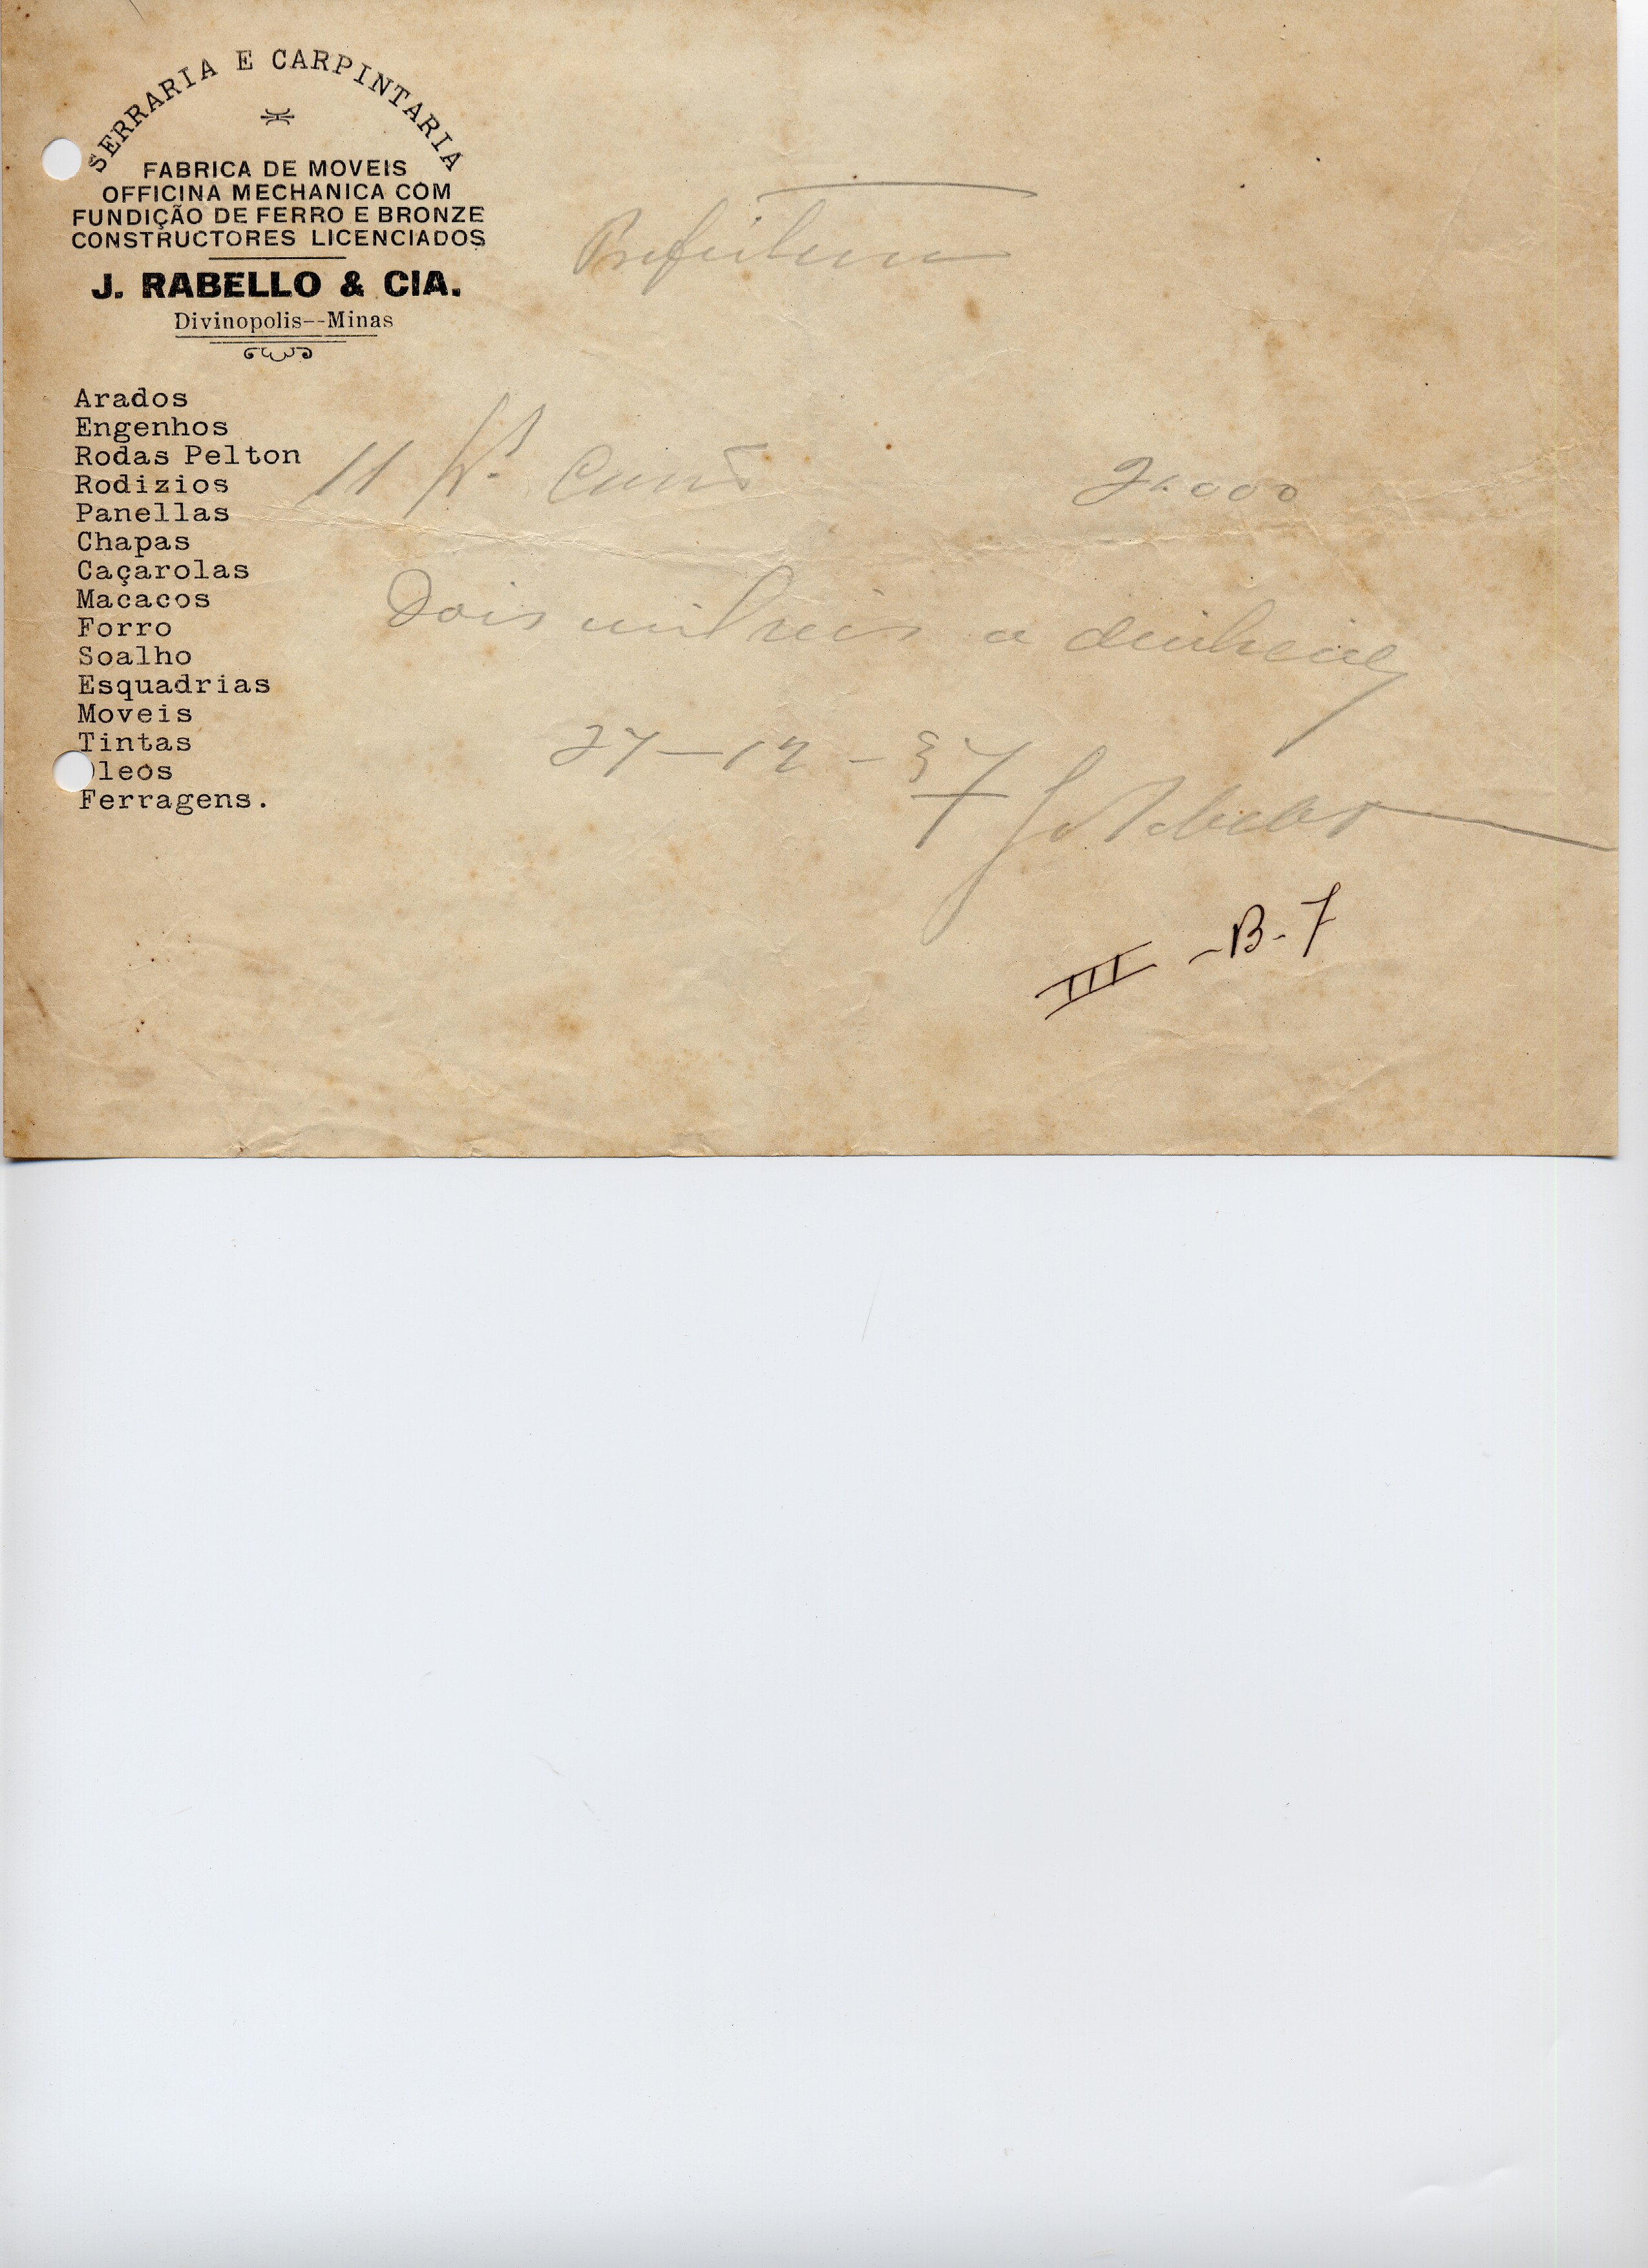 SERRARIA E CARPINTARIA
FABRICA DE MOVEIS
OFFICINA MECHANICA COM
FUNDIÇÃO DE FERRO E BRONZE
CONSTRUCTORES LICENCIADOS
J. RABELLO & CIA.
Divinopolis--Minas
Prefeitura
Arados
Engenhos
Rodas Pelton
Rodizios
Panellas
Chapas
Caçarolas
Macacos
Forro
Soalho
Esquadrias
Moveis
Tintas
leos
Ferragens.
11 2.000
Dois mil reis a dinheiro
27-12-37
J Rabello
III - B - 7